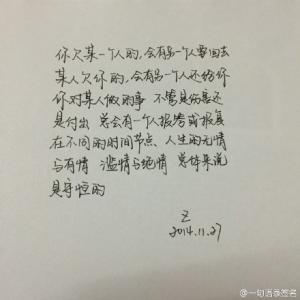 你欠某一个人的，会有另一个人要回去
某人欠你的，会有另一个人还给你
你对某人做的事 不管是伤害还
是付出 总会有一个人报答或报复
在不同的时间节点、人生的无情
与有情 滥情与绝情 总体来说
是守恒的
Z
2014.11.27
@一句语录签名